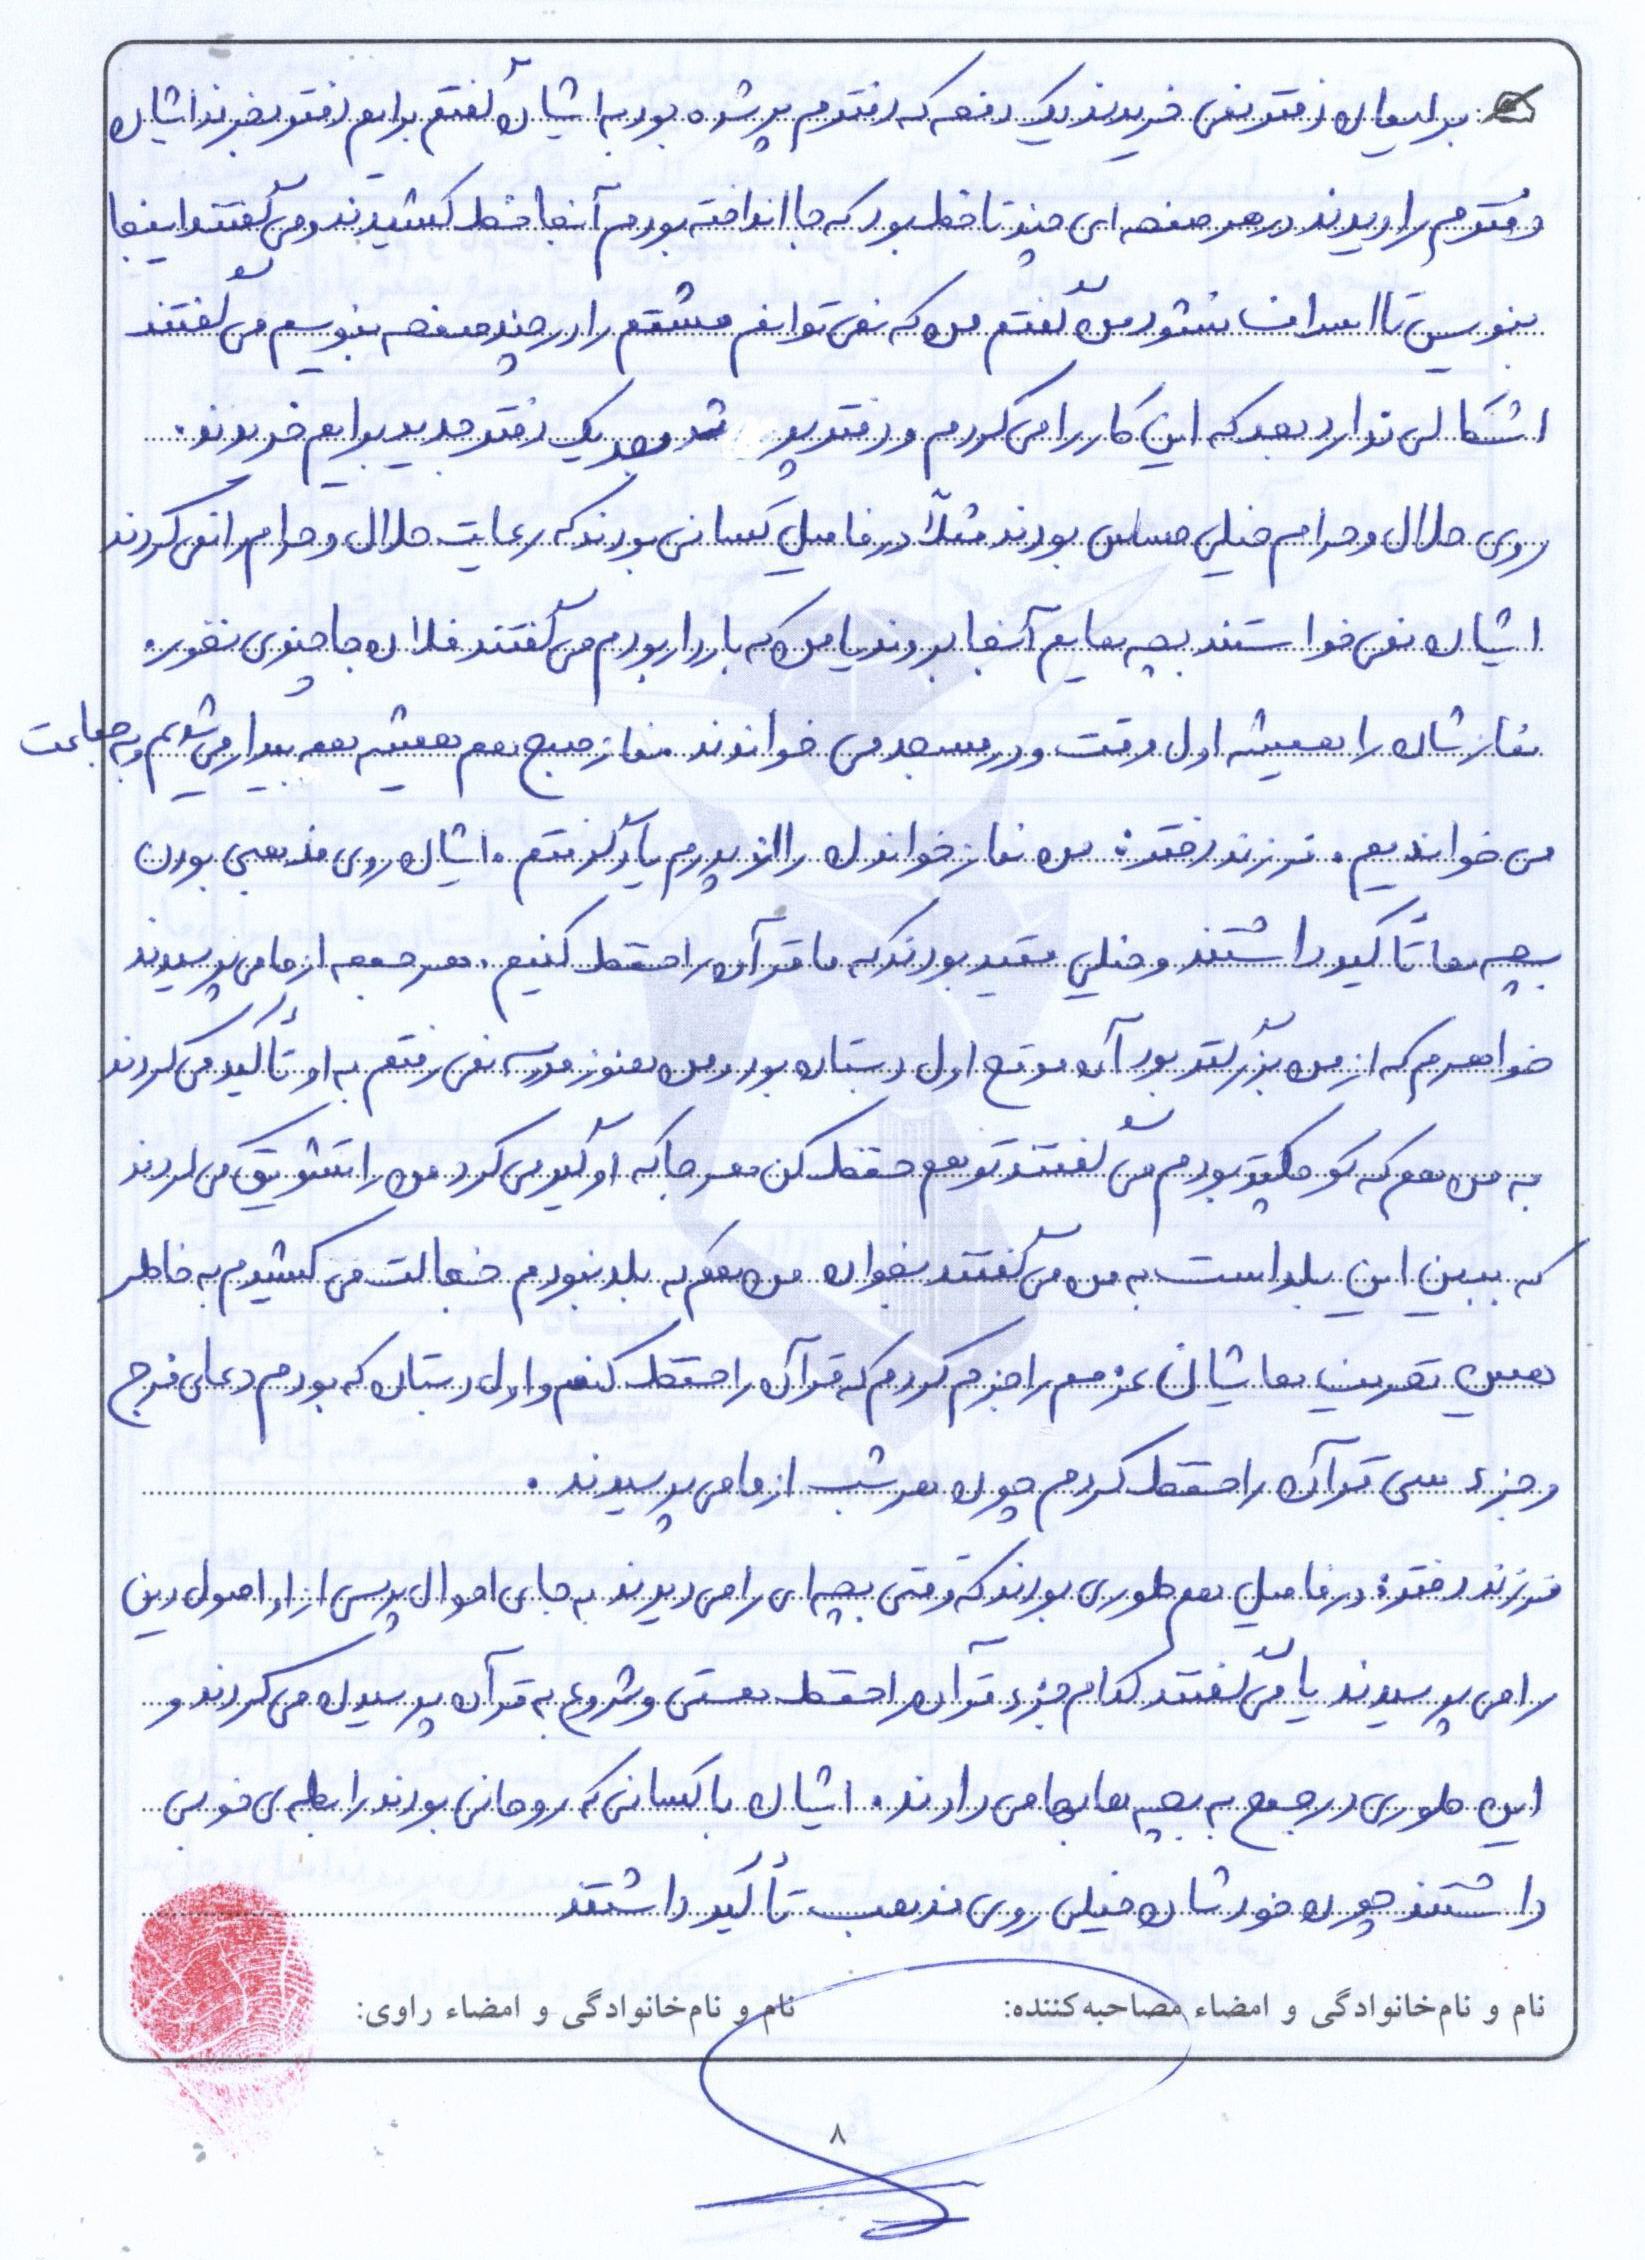 برایمان دفتر نمی خریدند یک دفعه که دفترم پر شده بود به ایشان گفتم برایم دفتر بخرند ایشان
دفترم را دیدند در هر صفحه ای چند تا خط بود که جا انداخته بودم آنجا خط کشیدند و می گفتند اینجا
بنویس تا اسراف نشود من گفتم من که نمی توانم مشقم را در چند صفحه بنویسم می گفتند
اشکالی ندارد بعد که این کار را می کردم و دفتر پر شد بعد یک دفتر جدید برایم خریدند.
روی حلال و حرام خیلی حساس بودند مثلاً در فامیل کسانی بودند که رعایت حلال و حرام را نمی کردند
ایشان نمی خواستند بچه هایم آنجا بروند یا من که باردار بودم می گفتند فلان جا چیزی نخور.
نمازشان را همیشه اول وقت و در مسجد می خواندند نماز صبح هم همیشه همه بیدار می شدیم و به جماعت
می خواندیم. فرزند دختر: من نماز خواندن را از پدرم یاد گرفتم. ایشان روی مذهبی بودن
بچه ها تأکید داشتند و خیلی مقید بودند که ما قرآن را حفظ کنیم. هر جمعه از ما می پرسیدند
خواهرم که از من بزرگتر بود آن موقع اول دبستان بود و من هنوز مدرسه نمی رفتم به او تأکید می کردند
به من هم که کوچکتر بودم می گفتند تو هم حفظ کن هر جا که او گیر می کرد من را تشویق می کردند
که ببین این بلد است به من می گفتند بخوان من هم که بلد نبودم خجالت می کشیدم به خاطر
همین تعریف هاشان عزمم را جزم کردم که قرآن را حفظ کنم و اول دبستان که بودم دعای فرج
و جزء سی قرآن را حفظ کردم چون هر شب از ما می پرسیدند.
فرزند دختر: در فامیل هم طوری بودند که وقتی بچه ای را می دیدند به جای احوال پرسی از او اصول دین
را می پرسیدند یا می گفتند کدام جزء قرآن را حفظ هستی و شروع به قرآن پرسیدن می کردند و
این طوری در جمع به بچه ها بها می دادند. ایشان با کسانی که روحانی بودند رابطه ی خوبی
داشتند چون خودشان خیلی روی مذهب تأکید داشتند
نام و نام‌خانوادگی و امضاء مصاحبه‌کننده: نام و نام‌خانوادگی و امضاء راوی:
۸